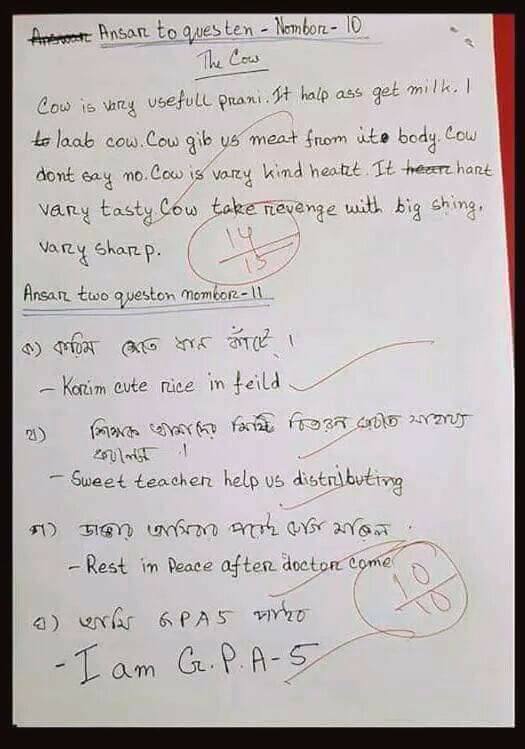 Answar Ansar to questen - Nombor - 10
The Cow
Cow is vary usefull prani. It halp ass get milk. I
to laab cow. Cow gib us meat from it body. Cow
dont say no. Cow is vary kind heatrt. It hearr hart
vary tasty. Cow take revenge with big shing,
vary sharp.
14/15
Ansar two queston nombor - 11
ক) করিম ক্ষেতে ধান কাঁটে ।
- Korim cute rice in feild
খ) শিক্ষক আমাদের মিষ্টি বিতরন
- Sweet teacher help us distributing
গ) ডাক্তার আসিবার
- Rest in Peace after doctor come
10/10
ঘ) আমি GPA5 পাইব
- I am G.P.A-5